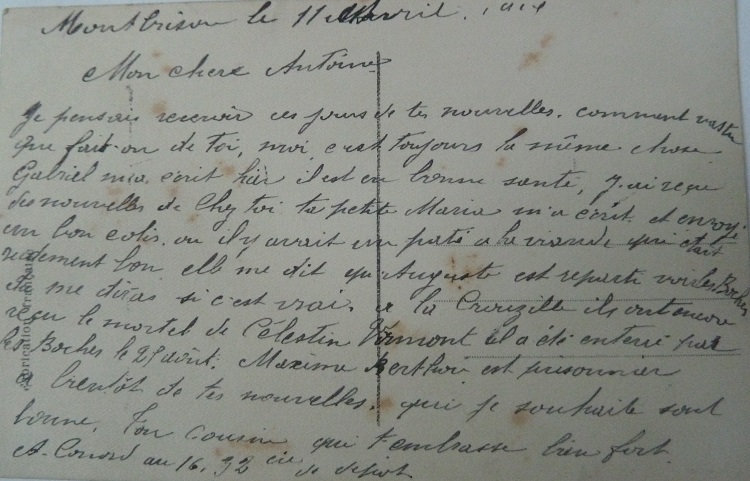 Montbrison le 11 Avril. 191
Mon chere Antoine
Je pensais recevoir ces jours de tes nouvelles. comment vastu
que fait-on de toi, moi c'est toujours la même chose
Gabriel m'a écrit hier il est en bonne santé, J'ai reçu
des nouvelles de Chez toi ta petite Maria m'a écrit et envoy
un bon colis. ou il y avait un paté a la viande qui était
rudement bon, elle me dit qu'Auguste est reparti voir les Boches
tu me diras si c'est vrai, a la Crouzille ils ont encore
reçu le mortel de Celestin il a été enterré par
les Boches le 25 août. Maxime Berthon est prisonnier
a bientôt de tes nouvelles. qui je souhaite sont
bonne, Ton cousin qui t'embrasse bien fort.
A. au 16, 32 cie de dépôt
Fabrication